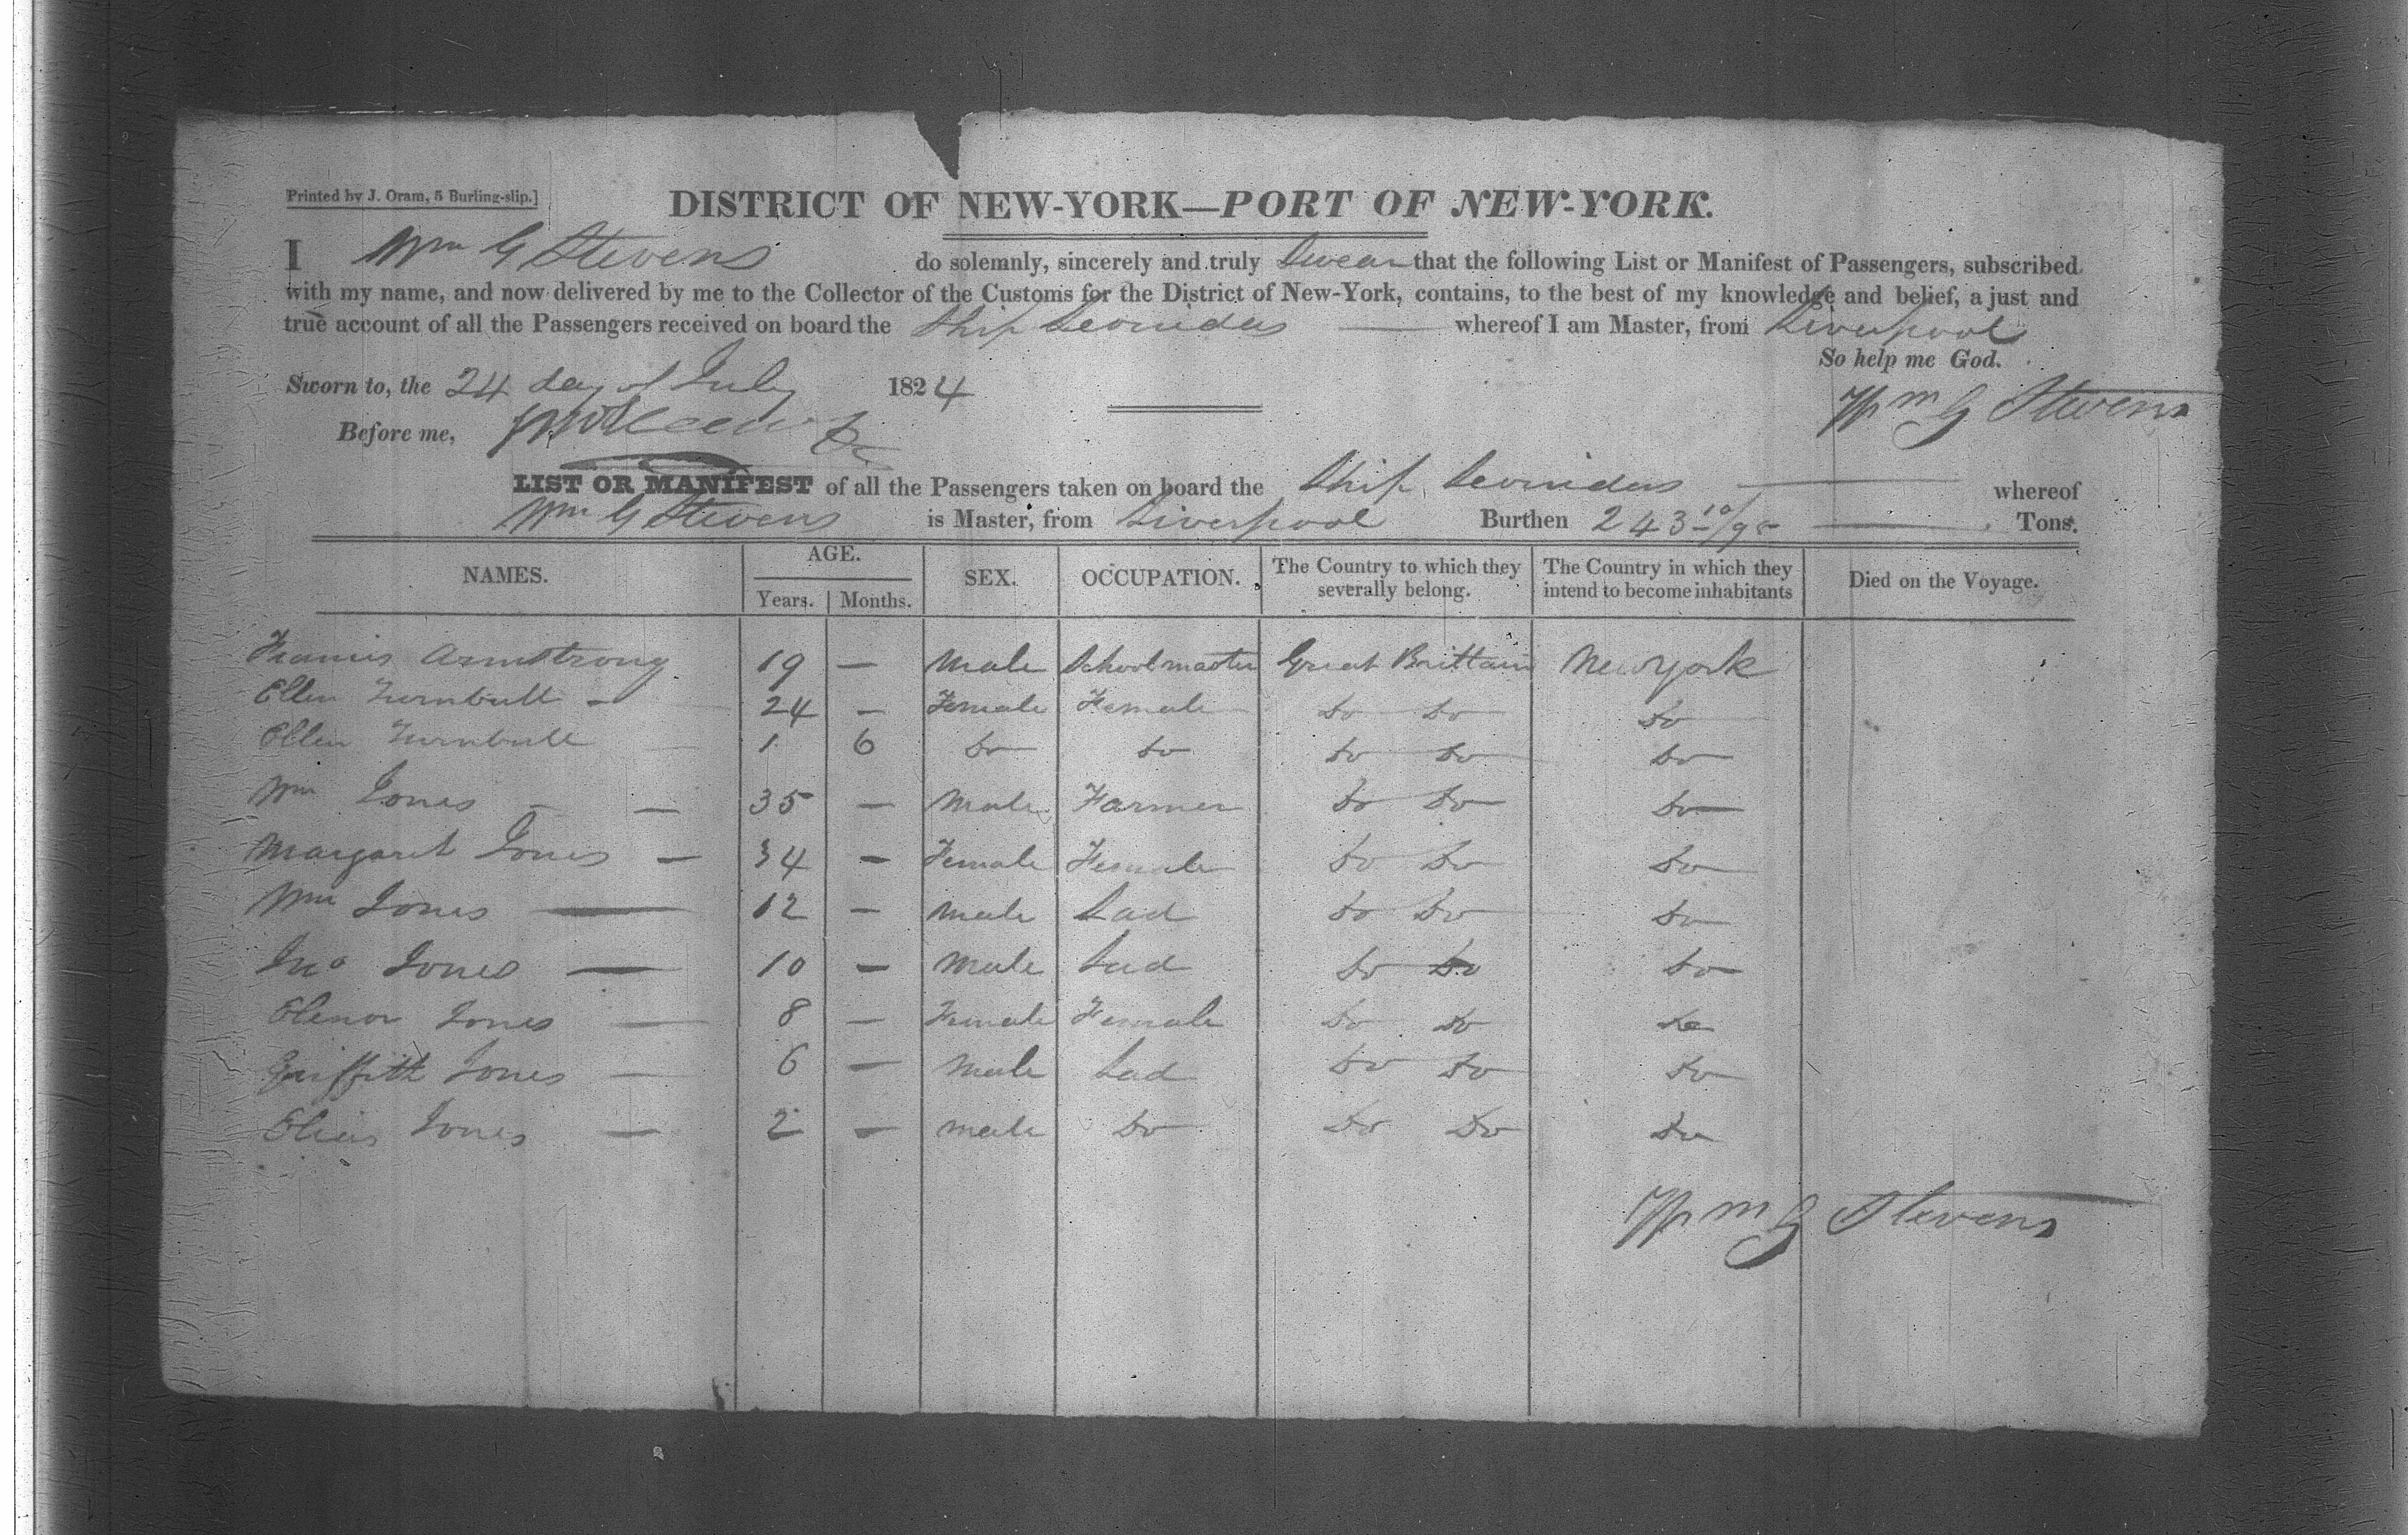 Printed by J. Oram, 5 Burling-slip.]
DISTRICT OF NEW-YORK—PORT OF NEW-YORK.
I Wm G Stevens do solemnly, sincerely and truly Swear that the following List or Manifest of Passengers, subscribed
with my name, and now delivered by me to the Collector of the Customs for the District of New-York, contains, to the best of my knowledge and belief, a just and
true account of all the Passengers received on board the Ship Leonidas whereof I am Master, from Liverpool
So help me God.
Sworn to, the 24 day of July 1824
Wm G Stevens
Before me,
LIST OR MANIFEST of all the Passengers taken on board the Ship Leonidas whereof
Wm G Stevens is Master, from Liverpool Burthen 243 10/95 Tons.
NAMES. AGE. Years. Months. SEX. OCCUPATION. The Country to which they severally belong. The Country in which they intend to become inhabitants Died on the Voyage.
Francis Armstrong 19 — Male Schoolmaster Great Brittain New York
Ellen Turnbull — 24 — Female Female Do Do Do
Ellen Turnbull — 1 6 Do Do Do Do Do
Wm Jones — — 35 — Male Farmer Do Do Do
Margaret Jones — 34 — Female Female Do Do Do
Wm Jones — 12 — Male Lad Do Do Do
Jno Jones — 10 — Male Lad Do Do Do
Elenor Jones — 8 — Female Female Do Do Do
Griffith Jones — 6 — Male Lad Do Do Do
Elias Jones — 2 — Male Do Do Do Do
Wm G Stevens